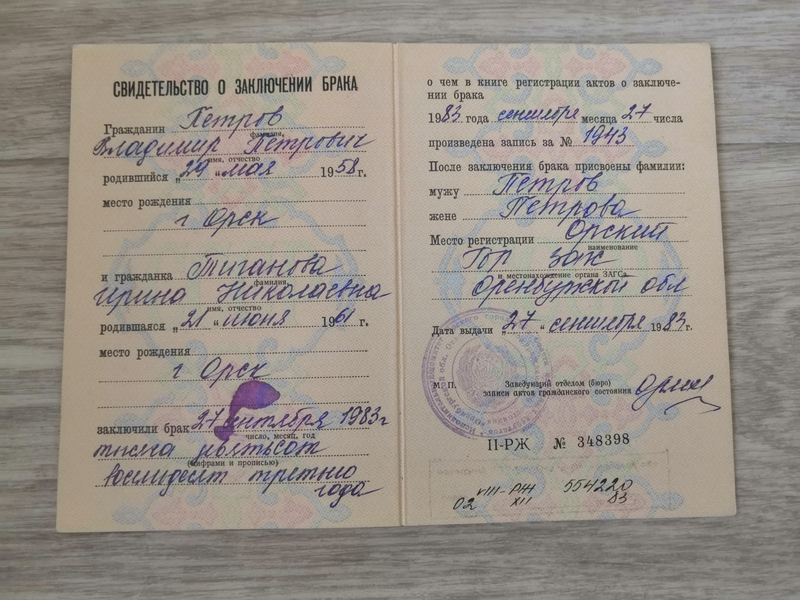 СВИДЕТЕЛЬСТВО О ЗАКЛЮЧЕНИИ БРАКА
Гражданин Петров
фамилия,
Владимир Петрович
имя, отчество
родившийся „29“ мая 1958 г.
место рождения
г Орск
и гражданка Тиганова
фамилия,
Ирина Николаевна
имя, отчество
родившаяся „21“ июня 1961 г.
место рождения
г Орск
заключили брак 27 сентября 1983 г
число, месяц, год
тысяча девятьсот
(цифрами и прописью)
восемидесят третьего
года
о чем в книге регистрации актов о заключе-
нии брака
1983 года сентября месяца 27 числа
произведена запись за № 1943
После заключения брака присвоены фамилии:
мужу Петров
жене Петрова
Место регистрации Орский
наименование
Гор загс
и местонахождение органа ЗАГСа
Оренбургской обл
Дата выдачи „27“ сентября 1983 г.
М. П. Заведующий отделом (бюро)
записи актов гражданского состояния
II-РЖ № 348398
VIII-РЖ 554220
02 XII 83